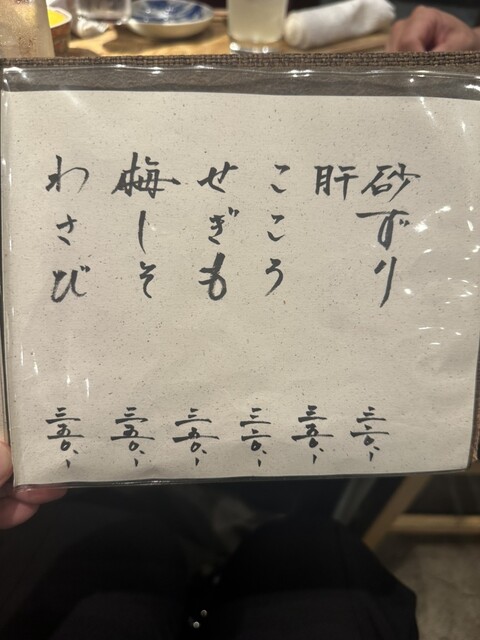 砂ずり 三二〇、-
肝 三五〇、-
こころ 三二〇、-
せぎも 三五〇、-
梅しそ 三五〇、-
わさび 三五〇、-